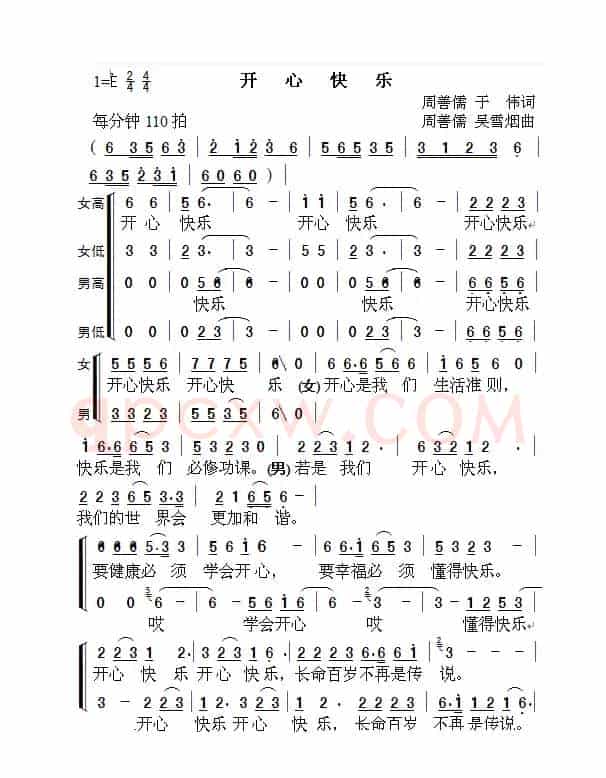 开 心 快 乐
1=E 2/4 4/4
周善儒 于 伟词
每分钟 110 拍
周善儒 吴雪烟曲
( 6 3 5 6 3 | 2 1 2 3 6 | 5 6 5 3 5 | 3 1 2 3 6 |
6 3 5 2 3 1 | 6 0 6 0 ) |
女高 6 6 | 5 6· | 6 - | 1 1 | 5 6· | 6 - | 2 2 2 3 |
开 心 快乐 开心 快 乐 开心快乐
女低 3 3 | 2 3· | 3 - | 5 5 | 2 3· | 3 - | 2 2 2 3 |
男高 0 0 | 0 5 6 | 6 - | 0 0 | 0 5 6 | 6 - | 6 6 5 6 |
快乐 快乐 开心快乐
男低 0 0 | 0 2 3 | 3 - | 0 0 | 0 2 3 | 3 - | 6 6 5 6 |
女 5 5 5 6 | 7 7 7 5 | 6 \ 0 | 6 6·6 5 6 | 1 6 5 6 | 6 0 |
开心快乐 开心快 乐 (女)开心是我 们 生活准 则，
男 3 3 2 3 | 5 5 3 5 | 6 \ 0 |
1 6·6 5 3 | 5 3 2 3 0 | 2 2 3 1 2· | 6 3 2 3 1 2· |
快乐是我 们 必修功课。(男)若是 我们 开心 快乐，
2 2 3 6 5 3·3 | 2 1 6 5 6 - |
我们的世 界会 更加和 谐。
6 6 6 5·3 3 | 5 6 1 6 | 3 - | 6 6·1 6 5 3 | 5 6 5 2 | 3 - |
要健康必 须 学会开 心， 要幸福必 须 懂得快 乐。
0 0 | 6 - | 6 - | 3 5 6 1 6 | 3 - | 3 - | 1 2 5 3 |
哎 学会开心 哎 懂得快乐
2 2 2 3 1 | 2 2 2 3 | 3 2 3 1 6· | 2 2 2 3 6·6 6 1 | 2 2 3 | 2 - |
开心 快 乐 开心 快 乐，长命百岁不再是传 说。
3 - | 2 2 2 3 1 | 2 2 2 3 | 1 6 5 6 | 2 2 2 3 | 6·1 1 2 1 6· |
开心 快乐 开 心 快 乐， 长命百岁 不再是传说。
apcxw.COM